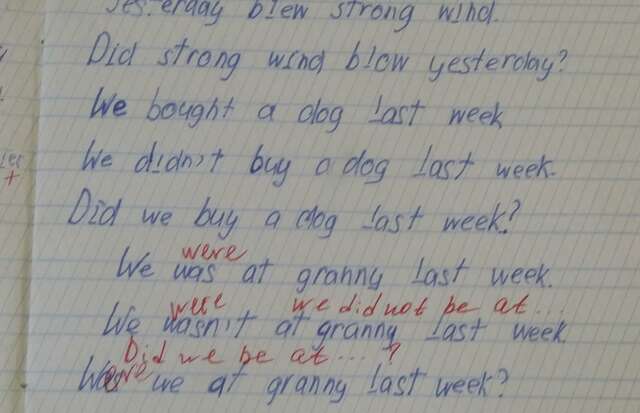 Yesterday blew strong wind.
Did strong wind blow yesterday?
We bought a dog last week
We didn't buy a dog last week.
Did we buy a dog last week?
were
We was at granny last week.
were we did not be at...
We wasn't at granny last week
Did we be at...?
Were we at granny last week?